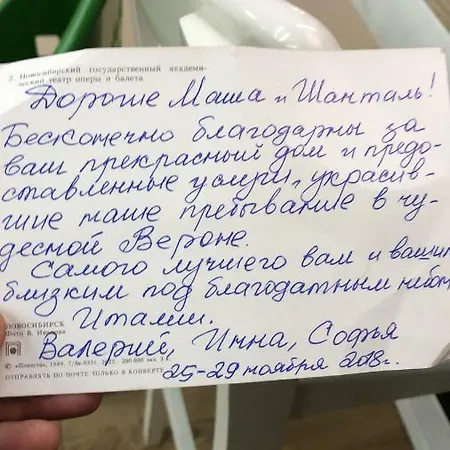 2. Новосибирский государственный академи-
ческий театр оперы и балета
Дорогие Маша и Шанталь!
Бесконечно благодарны за
ваш прекрасный дом и предо-
ставленные услуги, украсив-
шие наше пребывание в чу-
десной Вероне.
Самого лучшего вам и вашим
близким под благодатным небом
Италии.
НОВОСИБИРСК
Фото В.
Валерий, Инна, Софья
© «Планета», 1989.
25-29 ноября 2018г.
ОТПРАВЛЯТЬ ПО ПОЧТЕ ТОЛЬКО В КОНВЕРТЕ